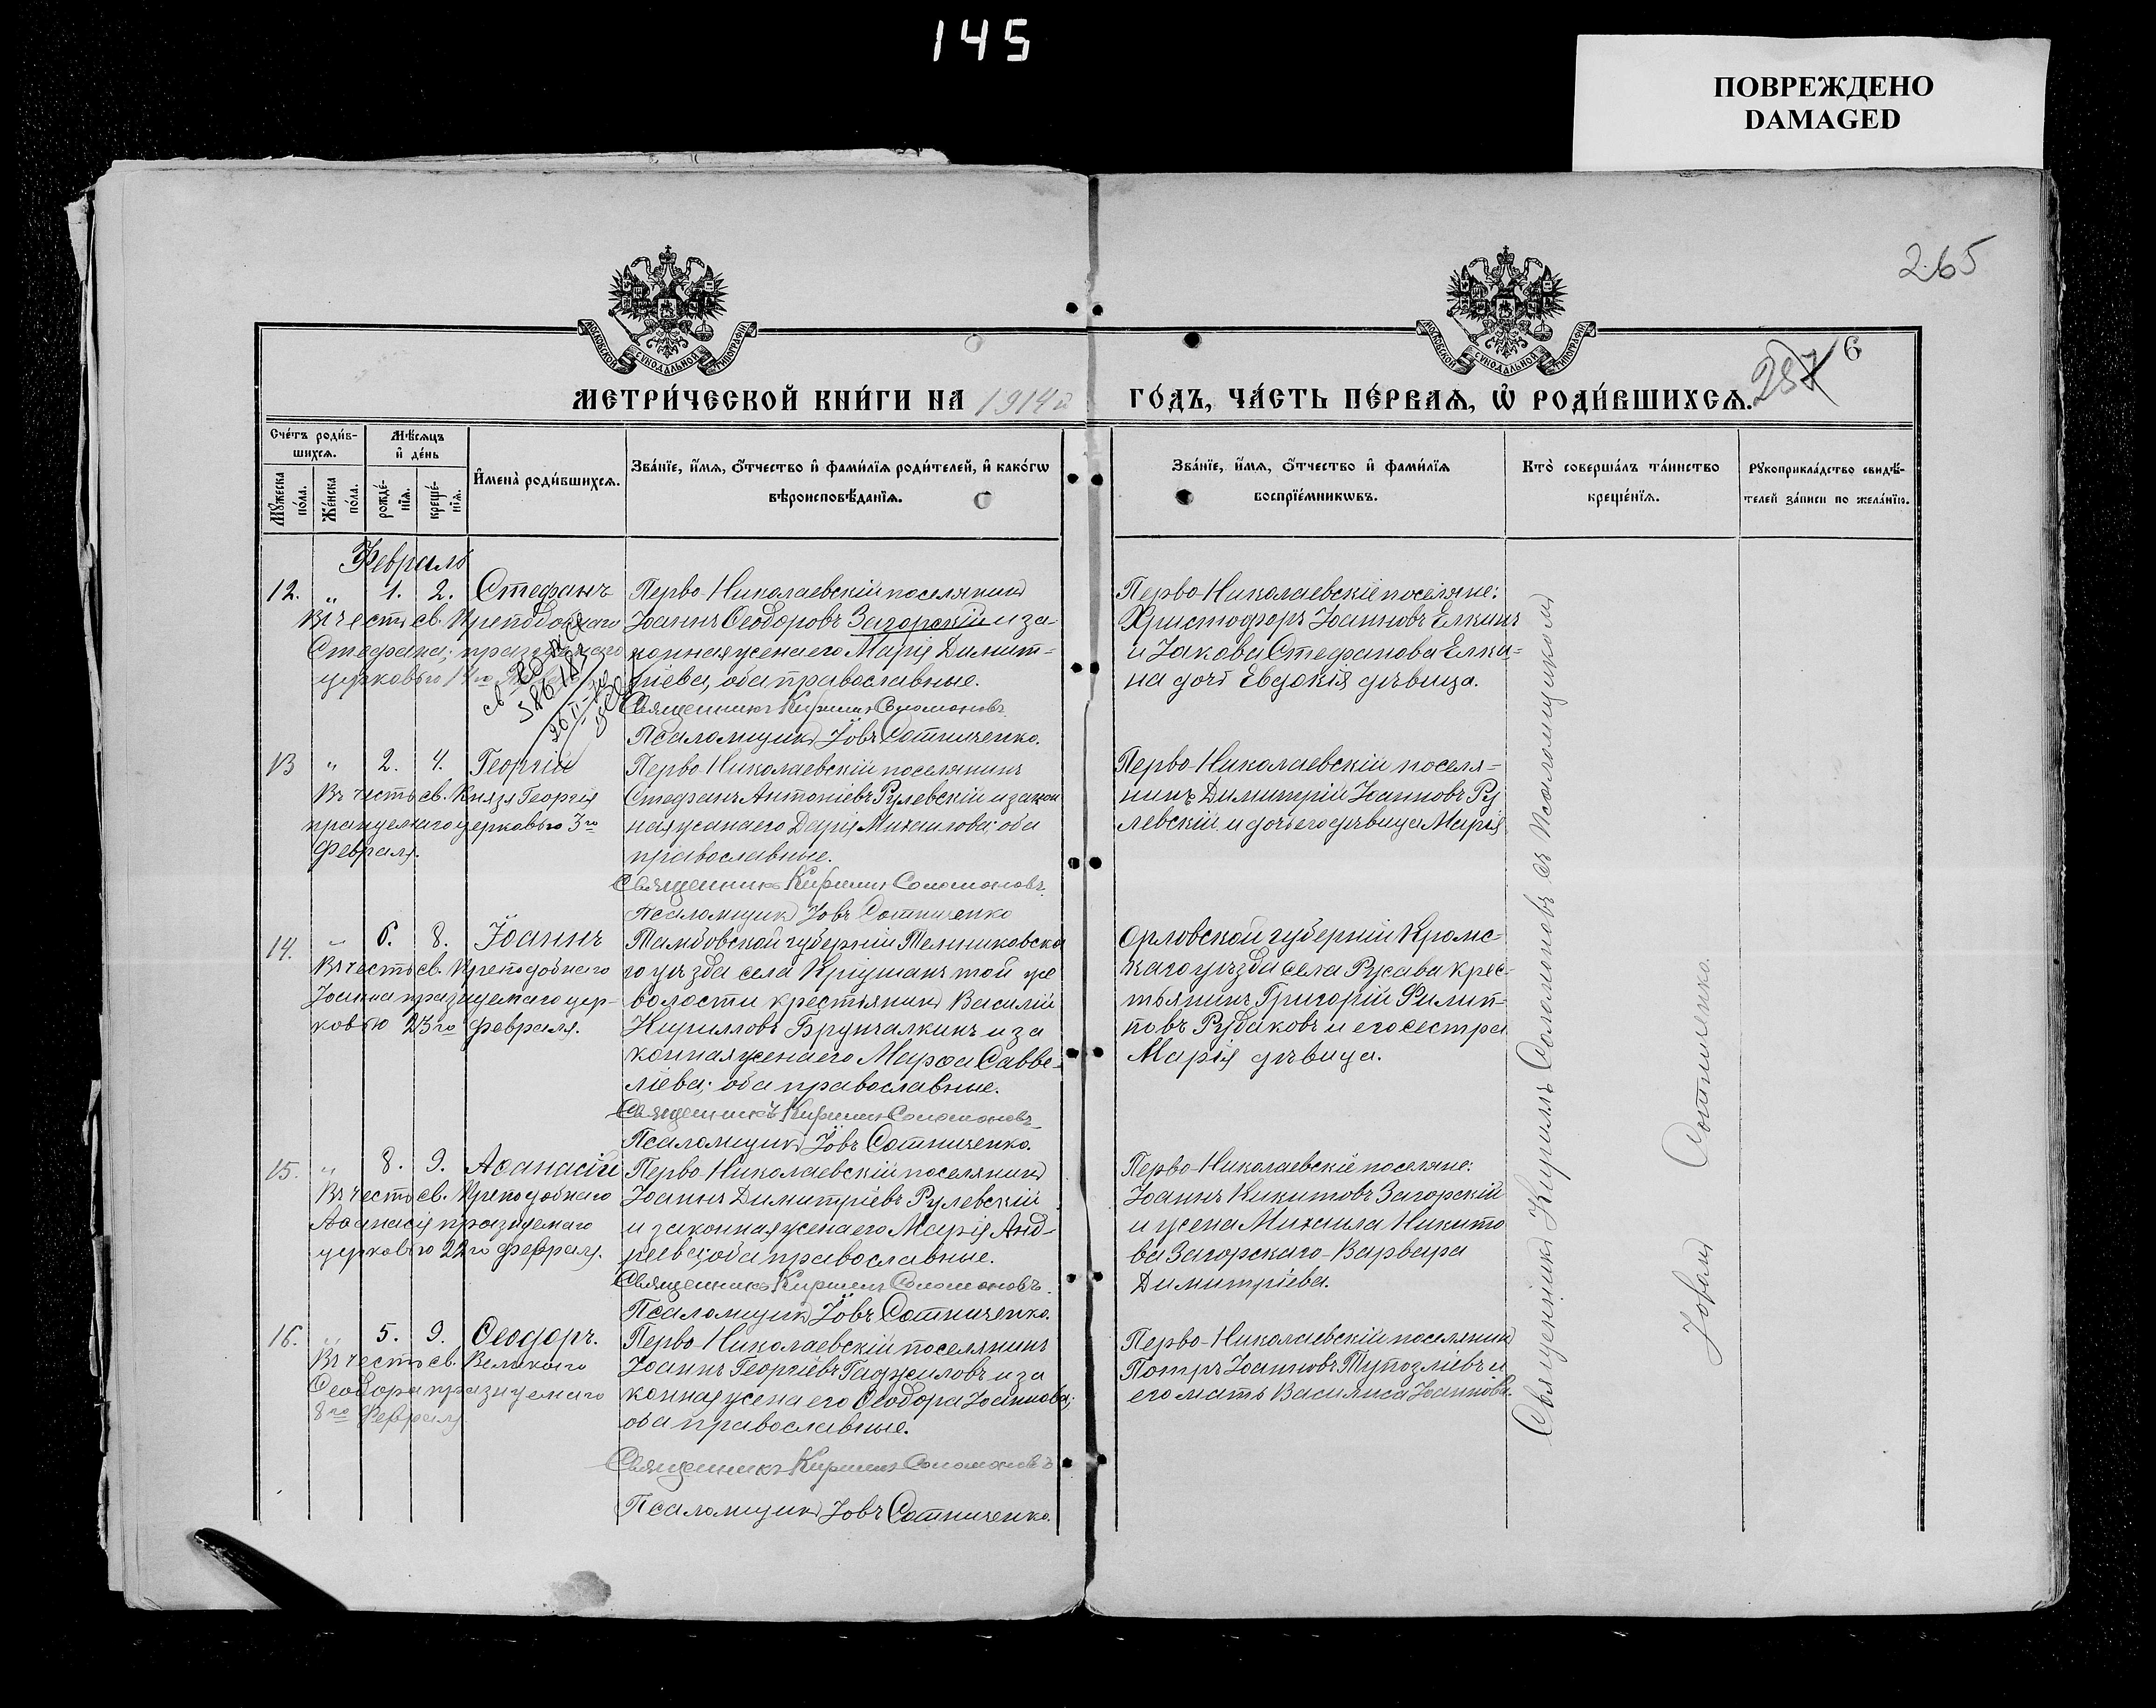 145
ПОВРЕЖДЕНО
DAMAGED
265
287 6
МОСКОВСКОЙ СѴНОДАЛЬНОЙ ТИПОГРАФІИ
МОСКОВСКОЙ СѴНОДАЛЬНОЙ ТИПОГРАФІИ
МЕТРИ́ЧЕСКОЙ КНИ́ГИ НА 1914й ГО́ДЪ, ЧА́СТЬ ПЕ́РВАѦ, Ѡ҆ РОДИ́ВШИХСѦ.
Сче́тъ роди́в-
шихсѧ.
Мꙋжеска по́ла.
Же́нска по́ла.
Мѣ́сѧцъ
и҆ де́нь
рожде́-
нїѧ.
креще́-
нїѧ.
И҆мена̀ роди́вшихсѧ.
Зва́нїе, и҆́мѧ, ѻ҆́тчество и҆ фами́лїѧ роди́телей, и҆ како́гѡ
вѣроисповѣ́данїѧ.
Зва́нїе, и҆́мѧ, ѻ҆́тчество и҆ фами́лїѧ
воспрїе́мникѡвъ.
Кто̀ соверша́лъ та́инство
креще́нїѧ.
Рꙋкоприкла́дство свидѣ́-
телей за́писи по жела́нїю.
Февраль
12. „ 1. 2. Стефанъ
Въ честь св. Преподобнаго
Стефана; празднуемаго
церковью 14го
Перво-Николаевскій поселянинъ
Іоаннъ Ѳеодоровъ Загорскій и за-
конная жена его Марія Димит-
ріева, оба православные.
Священникъ Кириллъ Соломоновъ.
Псаломщикъ Іовъ Сотниченко.
Перво-Николаевскіе поселяне:
Христофоръ Іоанновъ Елкинъ
и Іакова Стефанова Елки-
на дочь Евдокія дѣвица.
13 „ 2. 4. Георгій
Въ честь св. Князя Георгія
празднуемаго церковью 3го
Февраля.
Перво-Николаевскій поселянинъ
Стефанъ Антоніевъ Рулевскій и закон
ная жена его Дарія Михаилова; оба
православные.
Священникъ Кириллъ Соломоновъ.
Псаломщикъ Іовъ Сотниченко
Перво-Николаевскій поселя-
нинъ Димитрій Іоанновъ Ру
левскій и дочь его дѣвица Марія
14. „ 6. 8. Іоаннъ
Въ честь св. Преподобнаго
Іоанна празднуемаго цер-
ковью 23го февраля.
Тамбовской губерніи Темниковска
го уѣзда села Кріушанъ той же
волости крестьянинъ Василій
Кирилловъ Брунчалкинъ и за
конная жена его Марѳа Савве-
ліева; оба православные.
Священникъ Кириллъ Соломоновъ
Псаломщикъ Іовъ Сотниченко.
Орловской губерніи Кромс-
каго уѣзда села Русава крес-
тьянинъ Григорій Филип-
повъ Рудаковъ и его сестра
Марія дѣвица.
15. „ 8. 9. Аѳанасій
Въ честь св. Преподобнаго
Аѳанасія празднуемаго
церковью 22го февраля.
Перво-Николаевскій поселянинъ
Іоаннъ Димитріевъ Рулевскій
и законная жена его Марія Анд-
реева; оба православные.
Священникъ Кириллъ Соломоновъ.
Псаломщикъ Іовъ Сотниченко.
Перво-Николаевскіе поселяне:
Іоаннъ Никитовъ Загорскій
и жена Михаила Никито
ва Загорскаго-Варвара
Димитріева.
16. „ 5. 9. Ѳеодоръ.
Въ честь св. Великаго
Ѳеодора празднуемаго
8го Февраля
Перво-Николаевскій поселянинъ
Іоаннъ Георгіевъ Гаджиловъ и за
конная жена его Ѳеодора Іоаннова;
оба православные.
Священникъ Кириллъ Соломоновъ
Псаломщикъ Іовъ Сотниченко.
Перво-Николаевскій поселянинъ
Петръ Іоанновъ Тупозліевъ и
его мать Василиса Іоаннова.
Священникъ Кириллъ Соломоновъ съ Псаломщикомъ
Іовомъ Сотниченко.